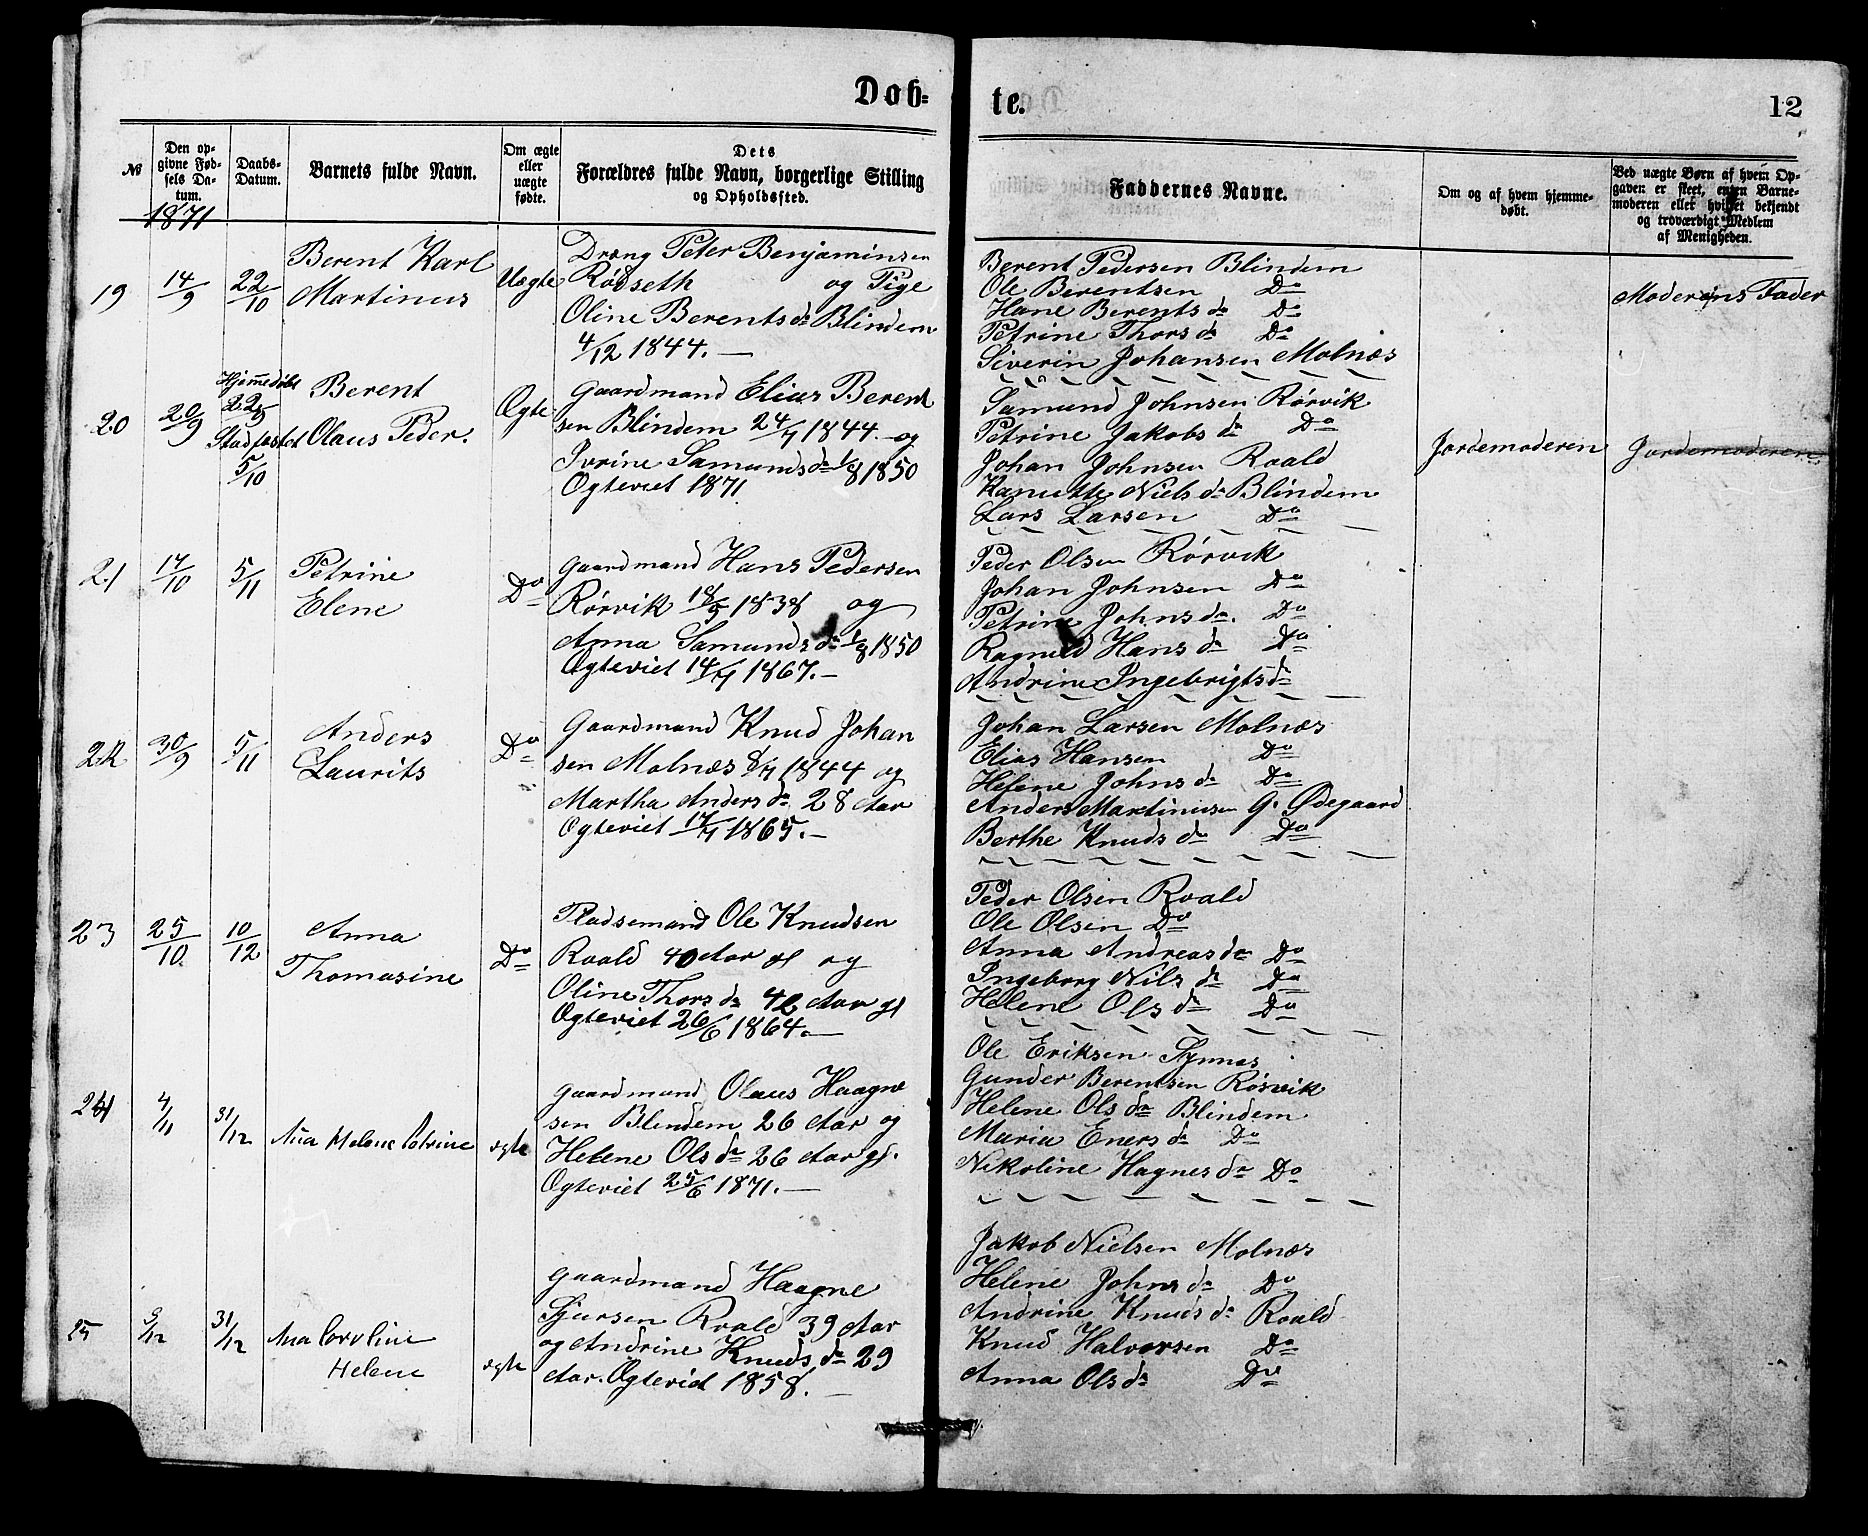 Døb-
te.
12
№
Den op-
givne Fød-
sels Da-
tum.
Daabs-
Datum.
Barnets fulde Navn.
Om ægte
eller
uægte
fødte.
Dets
Forældres fulde Navn, borgerlige Stilling
og Opholdssted.
Faddernes Navne.
Om og af hvem hjemme-
døbt.
Ved uægte Børn af hvem Op-
gaven er skeet, enten Barne-
moderen eller hvilket bekjendt
og troværdigt Medlem
af Menigheden.
1871
19
14/9
22/10
Berent Karl
Martinus
Uægte
Dræng Peter Benjaminsen
Rødseth og Pige
Oline Berents dr Blindem
4/12 1844. —
Berent Pedersen Blindem
Ole Berentsen Do
Hane Berents dr Do
Petrine Thors dr Do
Siverin Johansen Molnæs
Moderens Fader
20
20/9
Hjemmedøbt
22/9
Stadfæstet
5/10
Berent
Olaus Peder.
Ægte
Gaardmand Elias Berent
sen Blindem 24/7 1844. og
Ivrine Samunds dr 1/8 1850
Ægteviet 1871
Samund Johnsen Rørvik
Petrine Jakobs dr Do
Johan Johnsen Roald
Kanutte Niels dr Blindem
Lars Larsen Do
Jordemoderen
Jordemoderen
21
17/10
5/11
Petrine
Elene
Do
Gaardmand Hans Pedersen
Rørvik 18/5 1838 og
Anna Samunds dr 1/8 1850
Ægteviet 14/7 1867. —
Peder Olsen Rørvik
Johan Johnsen Do
Petrine Johns dr. Do
Ragnild Hans dr Do
Andrine Ingebrigts dr
22
30/9
5/11
Anders
Laurits
Do
Gaardmand Knud Johan
sen Molnæs 8/7 1844 og
Martha Anders dr 28 Aar
Ægteviet 17/7 1865. —
Johan Larsen Molnæs
Elias Hansen Do
Helene Johns dr Do
Anders Martinusen G. Ødegaard
Berthe Knuds dr Do
23
25/10
10/12
Anna
Thomasine
Do
Pladsemand Ole Knudsen
Roald 40 Aar gl og
Oline Thors dr 42 Aar gl
Ægteviet 26/6 1864. —
Peder Olsen Roald
Ole Olsen Do
Anna Andreas dr Do
Ingeborg Nils dr Do
Helene Ols dr Do
24
4/11
31/12
Helene Petrine
ægte
Gaardmand Olaus Haagne
sen Blindem 26 Aar og
Helene Ols dr 26 Aar gl.
Ægteviet 25/6 1871. —
Ole Eriksen Synnes
Gunder Berentsen Rørvik
Helene Ols dr Blindem
Maria Eners dr Do
Nikoline Hagnes dr Do
25
9/12
31/12
Caroline
Helene
ægte
Gaardmand Haagne
Sjursen Roald 39 Aar
og Andrine Knuds dr 29
Aar. Ægteviet 1858. —
Jakob Nielsen Molnæs
Helene Johns dr Do
Andrine Knuds dr Roald
Knud Halvorsen Do
Anna Ols dr Do